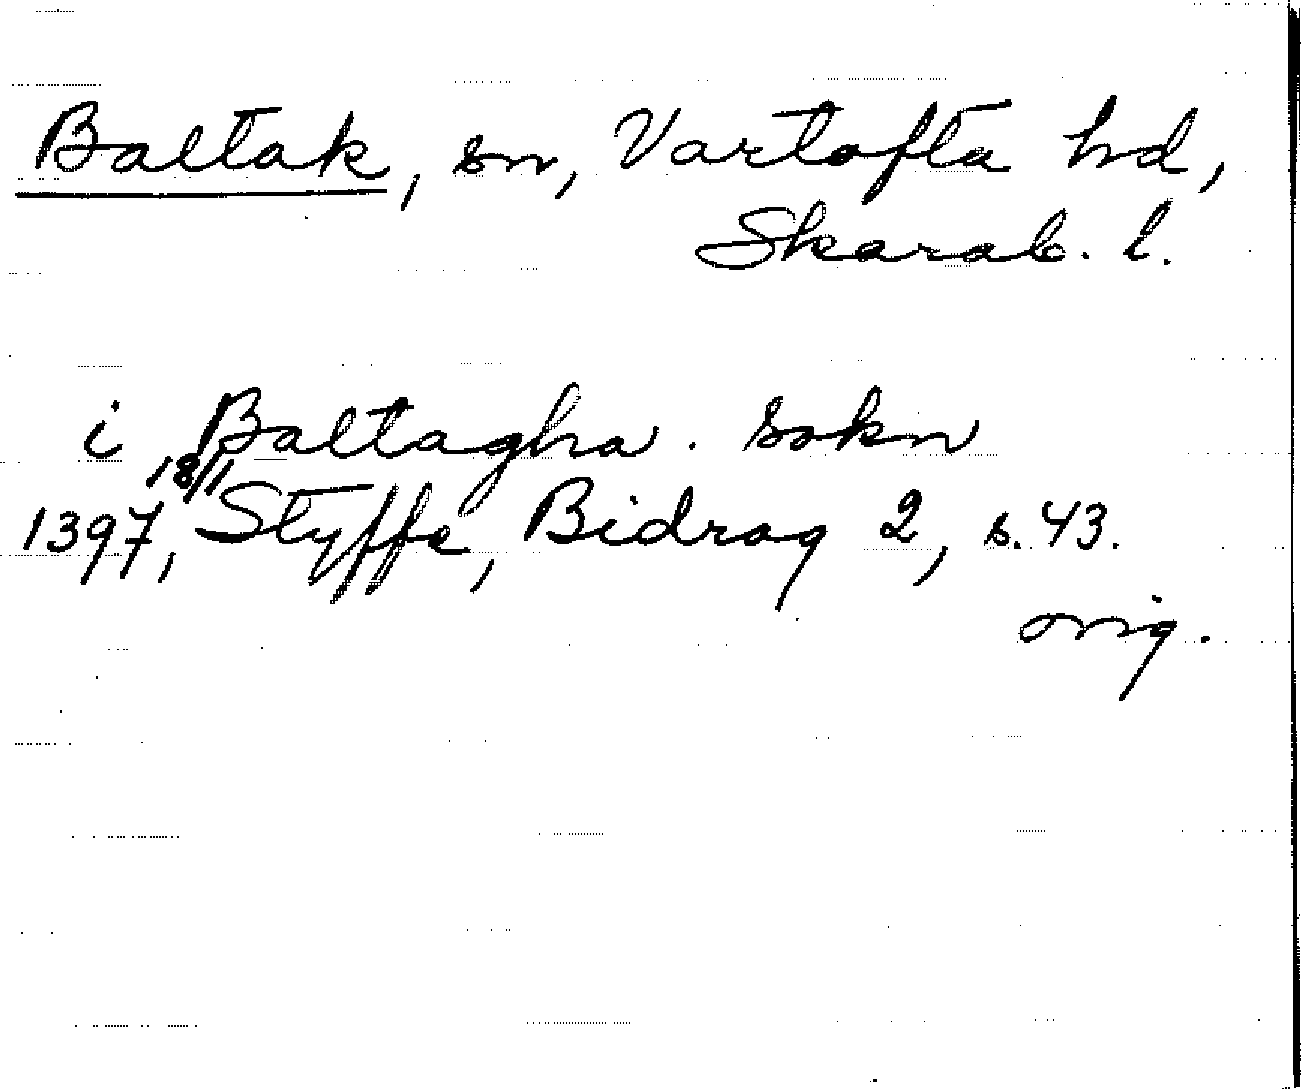 Baltak, sn, Vartofta hd,
Skarab. l.
i Baltagha. sokn
18/1
1397, Styffe, Bidrag 2, s. 43.
orig.